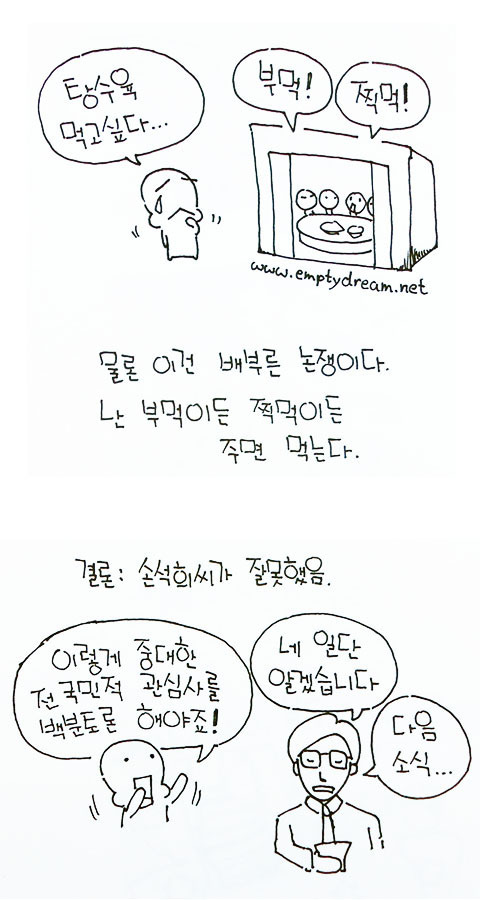 탕수육
먹고싶다...
부먹!
찍먹!
www.emptydream.net
물론 이건 배부른 논쟁이다.
난 부먹이든 찍먹이든
주면 먹는다.
결론: 손석희씨가 잘못했음.
이렇게 중대한
전국민적 관심사를
백분토론 해야죠!
네 일단
알겠습니다
다음
소식...